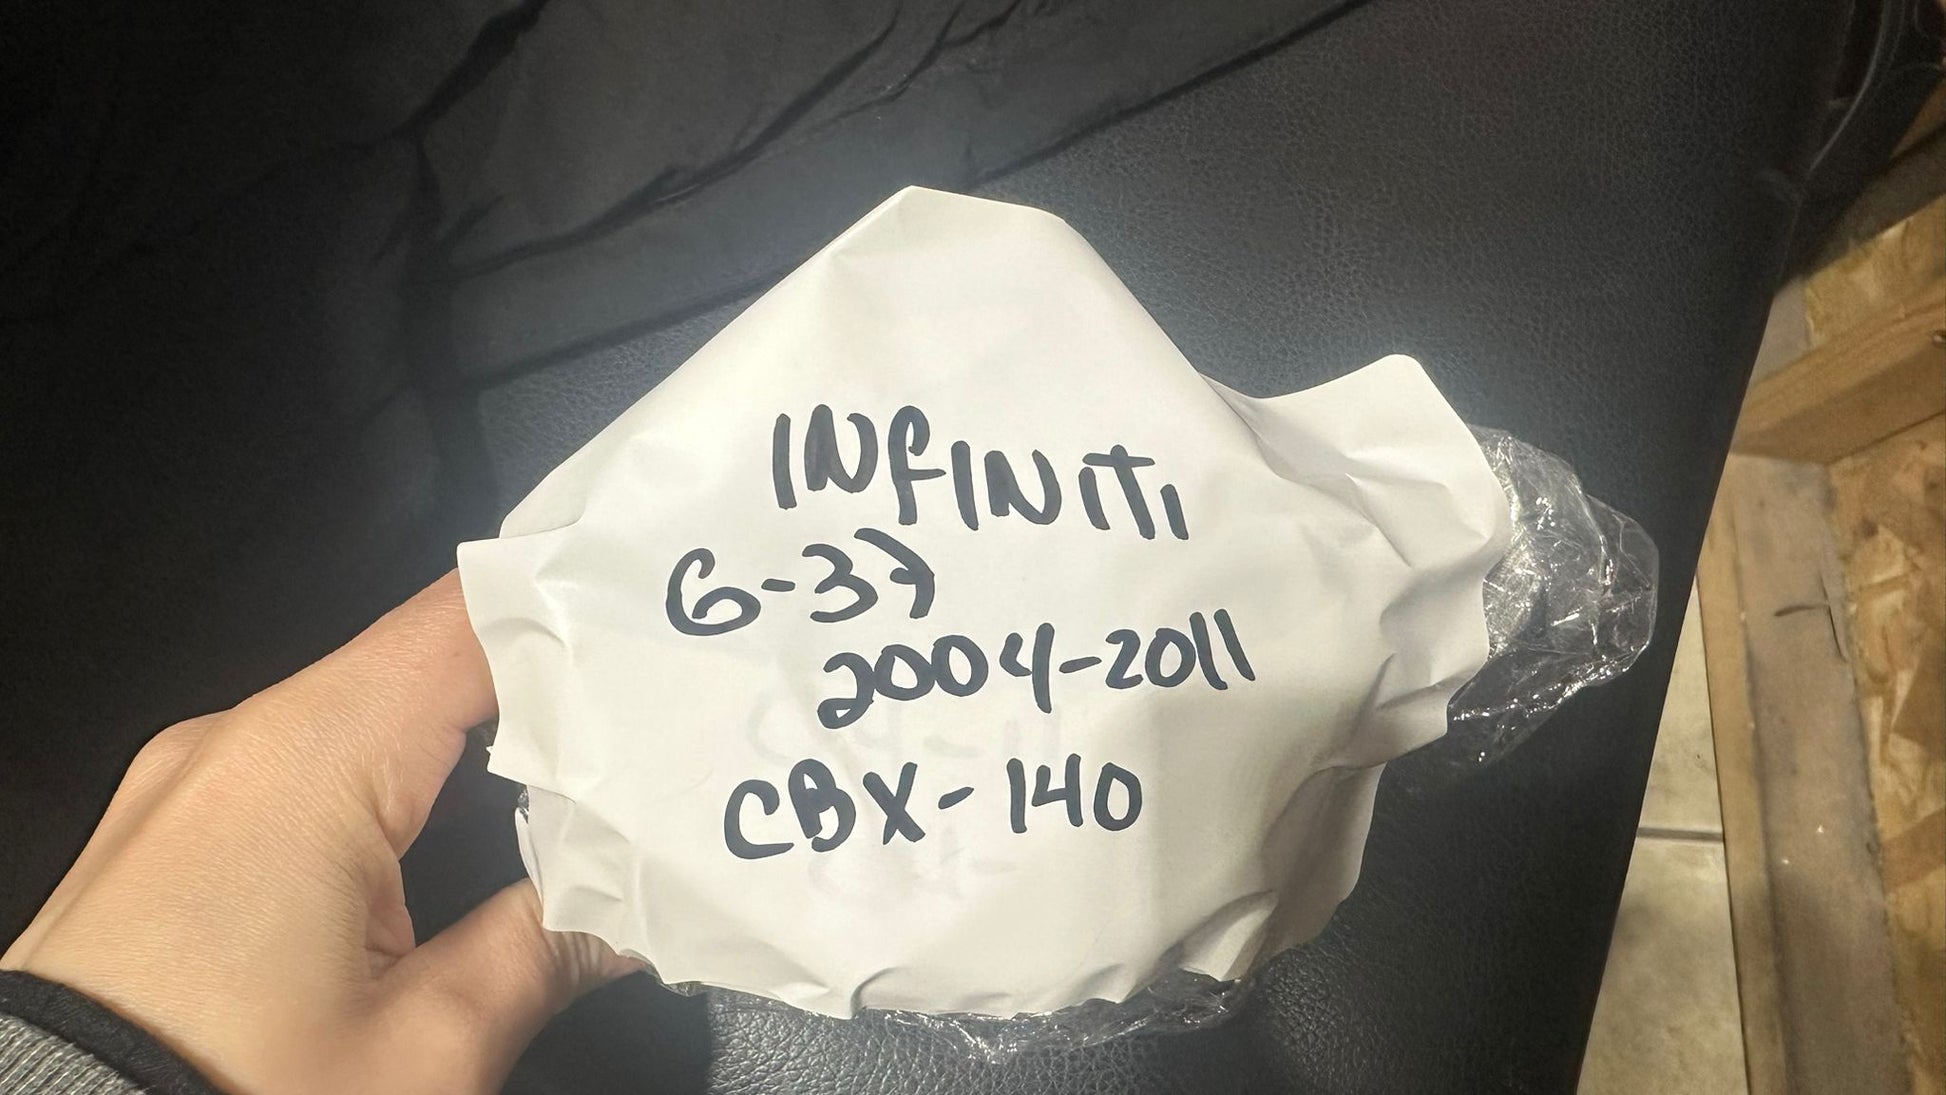 INFINITI
G-37
2004-2011
CBX-140